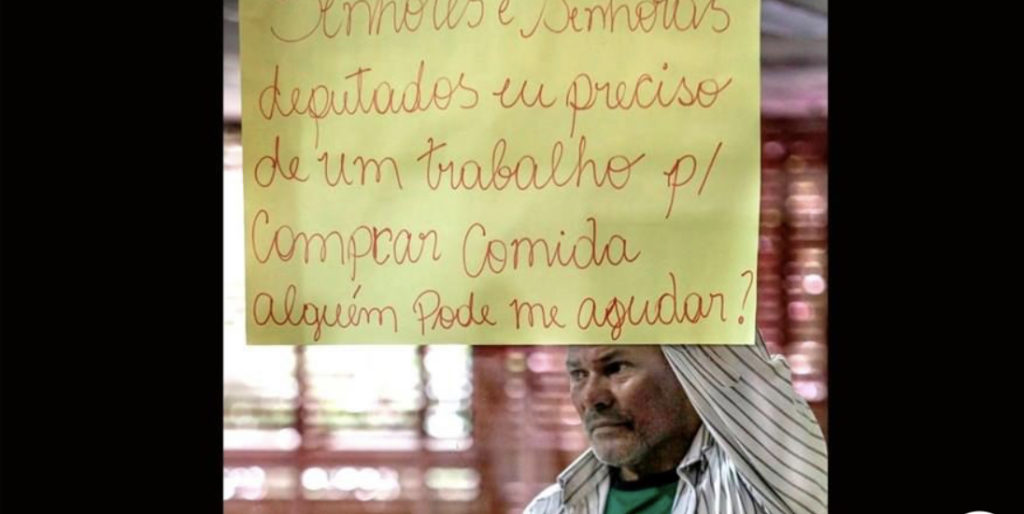 Senhores e Senhoras
deputados eu preciso
de um trabalho p/
Comprar Comida
alguém Pode me agudar?